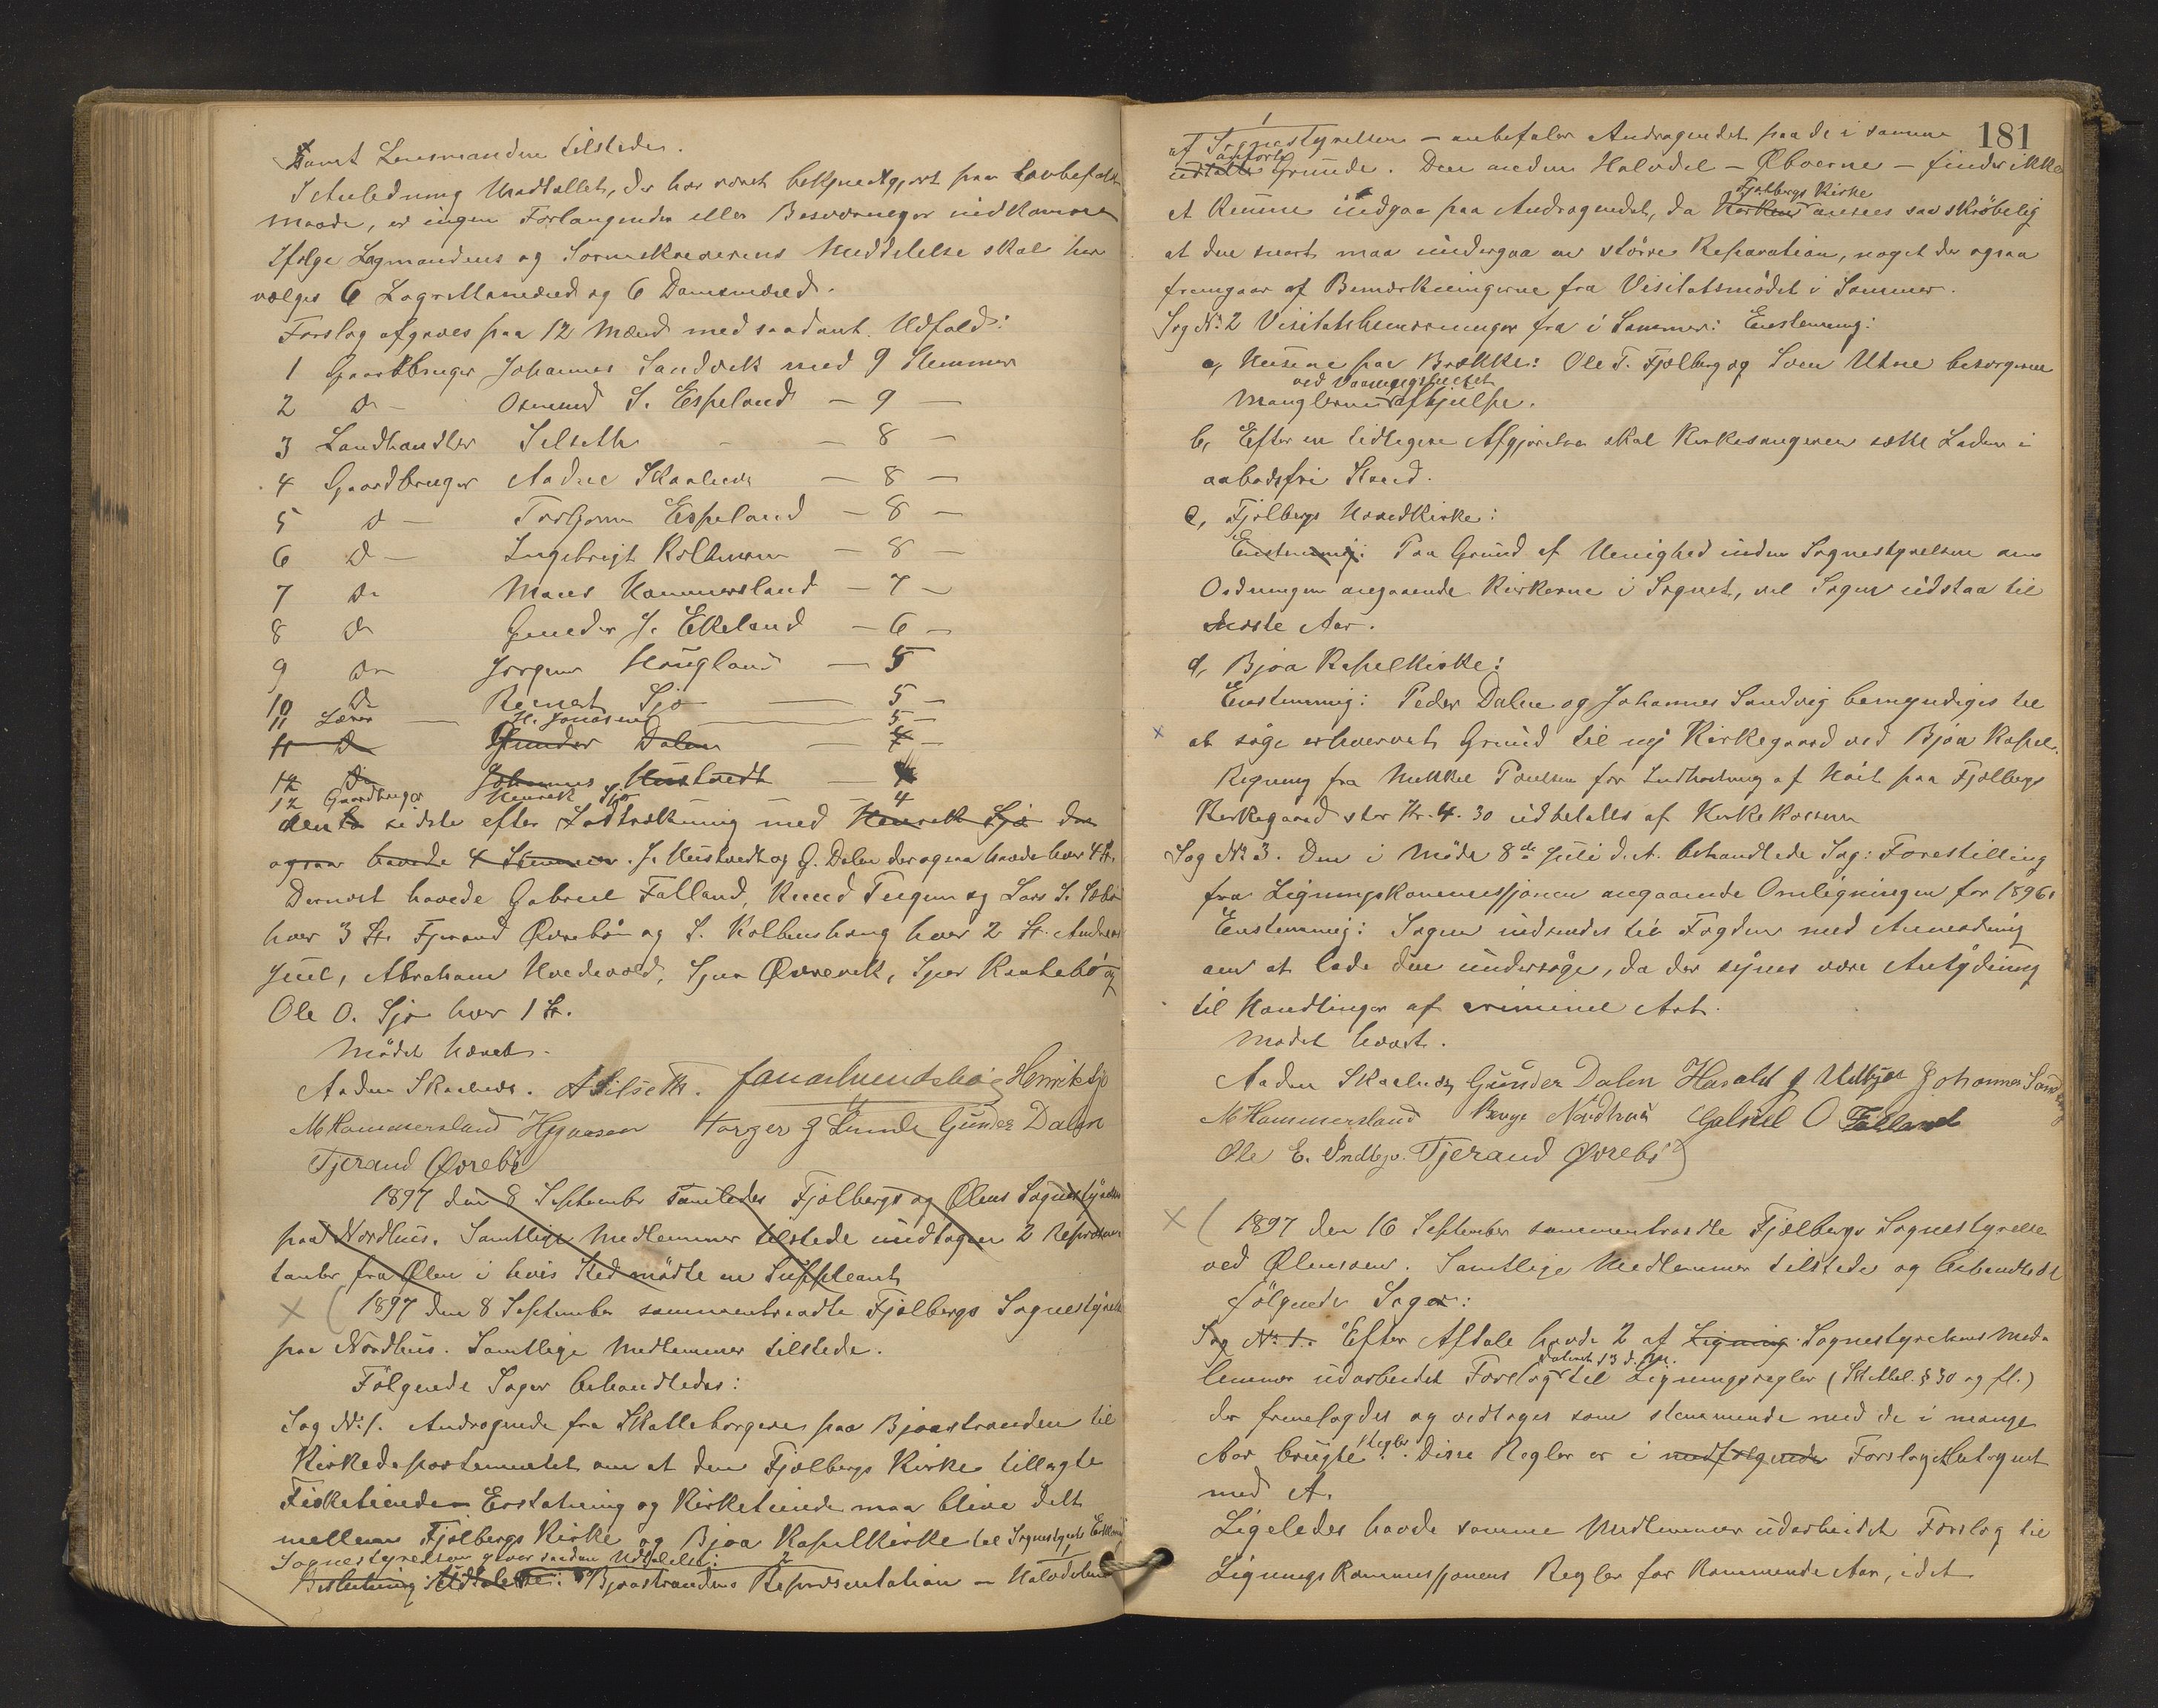 samt Lensmanden tilstede.
I Anledning Mandtallet, der har været bekjendtgjort paa lovbefalt
Maade, er ingen Forlangender eller Besværinger indkommen
Ifølge Lagmandens og Sorenskriverens Meddelelse skal her
vælges 6 Lagrettemænd og 6 Domsmænd.
Forslag afgaves paa 12 Mænd med saadant Udfald:
1 Gaardbruger Johannes Sandvik med 9 Stemmer
2 Do - Osmund S. Espeland - 9 -
3 Landhandler Silseth - - 8 -
4 Gaardbruger Aadne Skaalnes - 8 -
5 Do - Torbjørn Espeland - 8 -
6 Do - Ingebrigt - 8 -
7 Do Mons Hammersland - 7 -
8 Do Gunder J. Ekeland - 6 -
9 Do Jørgen Haugland - 5
10 Do Reinert Sjo - 5 -
11 Lærer - H. Jonassen - 5 -
11 Do Gunder Dalen - 4 -
12 Do Johannes Hustvedt -
12 Gaardbruger Henrik Sjo - 4
den sidste efter Lodtrækning med Henrik Sjo der
ogsaa havde 4 Stemmer. J. Hustvedt og G. Dalen der ogsaa havde hver 4 St.
Dernæst havde Gabriel Falland, Knud Teigen og Lars S. Sæbø
hver 3 St. Tjerand Øvrebø og S. Kolbenshaug hver 2 St. Andreas
Juul, Abraham Hvedevold, Sjur Øvrevik, Sjur og
Ole O. Sjo hver 1 St.
Mødet hævet.
Aadne Skaalnes. A Silseth. Henrik Sjo
M Hammersland H Jonassen Torger G Lunde Gunder Dalen
Tjerand Øvrebø
1897 den 8 September samledes Fjelbergs og Ølens Sognestyrelse
paa Nordhus. Samtlige Medlemmer tilstede undtagen 2 Repræsen
tanter fra Ølen i hvis Sted mødte en Suppleant
× ( 1897 den 8 September sammentraadte Fjelbergs Sognestyrelse
paa Nordhus. Samtlige Medlemmer tilstede.
Følgende Sager behandledes:
Sag No 1. Andragende fra Skatteborgere paa Bjoastranden til
Kirkedepartementet om at den Fjelbergs Kirke tillagte
Fisketiende - Erstatning og Kirketiende maa blive delt
mellem Fjelbergs Kirke og Bjoa Kapelkirke til Sognestyrets Erklæring
Sognestyrelsen gaver saadan Udtalelse: 2
Beslutning Udtalelse: Bjoastrandens Repræsentation - Halvdelen
181
1
af Sognestyrelsen - anbefaler Andragendet paa de i samme
anførte
udtalte Grunde. Den anden Halvdel - Øboerne - finder ikke
Fjelbergs Kirke
at kunne indgaa paa Andragendet, da Kirken ansees saa skrøbelig
at den snart maa undergaa en større Reparation, noget der ogsaa
fremgaar af Bemærkningerne fra Visitatsmødet i Sommer.
Sag No 2 Visitatsbemærkninger fra i Sommer: Enstemmig:
a, Husene paa Brække: Ole T. Fjelberg og Sven Utne besørgerne
ved Vaaningshuset
Manglerne afhjulpe.
b, Efter en tidligere Afgjørelse skal Kirkesangeren sætte Laden i
aabodsfri Stand.
c, Fjelbergs Hovedkirke:
Enstemmig: Paa Grund af Uenighed inden Sognestyrelsen om
Ordningen angaaende Kirkerne i Sognet, vil Sagen udstaa til
næste Aar.
d, Bjoa Kapelkirke:
Enstemmig: Peder Dalen og Johannes Sandvig bemyndiges til
× at søge erhvervet Grund til ny Kirkegaard ved Bjoa Kapel.
Regning fra Mikkel Poulsen for Indhøstning af Høit paa Fjelbergs
Kirkegaard stor Kr. 4.30 udbetales af Kirkekassen
Sag No 3. Den i Møde 8de Juli d.A. behandlede Sag: Forestilling
fra Ligningskommissjonen angaaende Omligningen for 1896.
Enstemmig: Sagen indsendes til Fogden med Anmodning
om at lade den undersøge, da der synes være Antydning
til Handlinger af criminel Art.
Mødet hævet.
Aadne Skaalnes Gunder Dalen Harald J Johannes Sandvig
M Hammersland Børge Nordhus Gabriel O Falland
Ole E. Tjerand Øvrebø
× ( 1897 den 16 September sammentraadte Fjelbergs Sognestyrelse
ved Ølensoen. Samtlige Medlemmer tilstede og behandledes
følgende Sager:
Sag No 1. Efter Aftale havde 2 af Ligning Sognestyrelsens Med-
dateret 13 d. M.
lemmer udarbeidet Forslag til Ligningsregler (Skattel. § 30 og fl.)
der fremlagdes og vedtages som stemmende med de i mange
Regler
Aar brugte. Disse Regler er i medfølgende Forslag betegnet
med A.
Ligeledes havde samme Medlemmer udarbeidet Forslag til
Ligningskommissjonens Regler for kommende Aar, idet